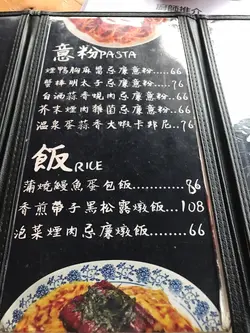 廚師推介
意粉PASTA
煙鴨胸麻醬忌廉意粉.....66
蟹棒明太子忌廉意粉.....76
白酒蒜香蜆肉忌廉意粉...66
芥末煙肉雜菌忌廉意粉...66
溫泉蛋蒜香大蝦卡邦尼...76
飯RICE
蒲燒鰻魚蛋包飯..........86
香煎帶子黑松露燉飯...108
泡菜煙肉忌廉燉飯........66